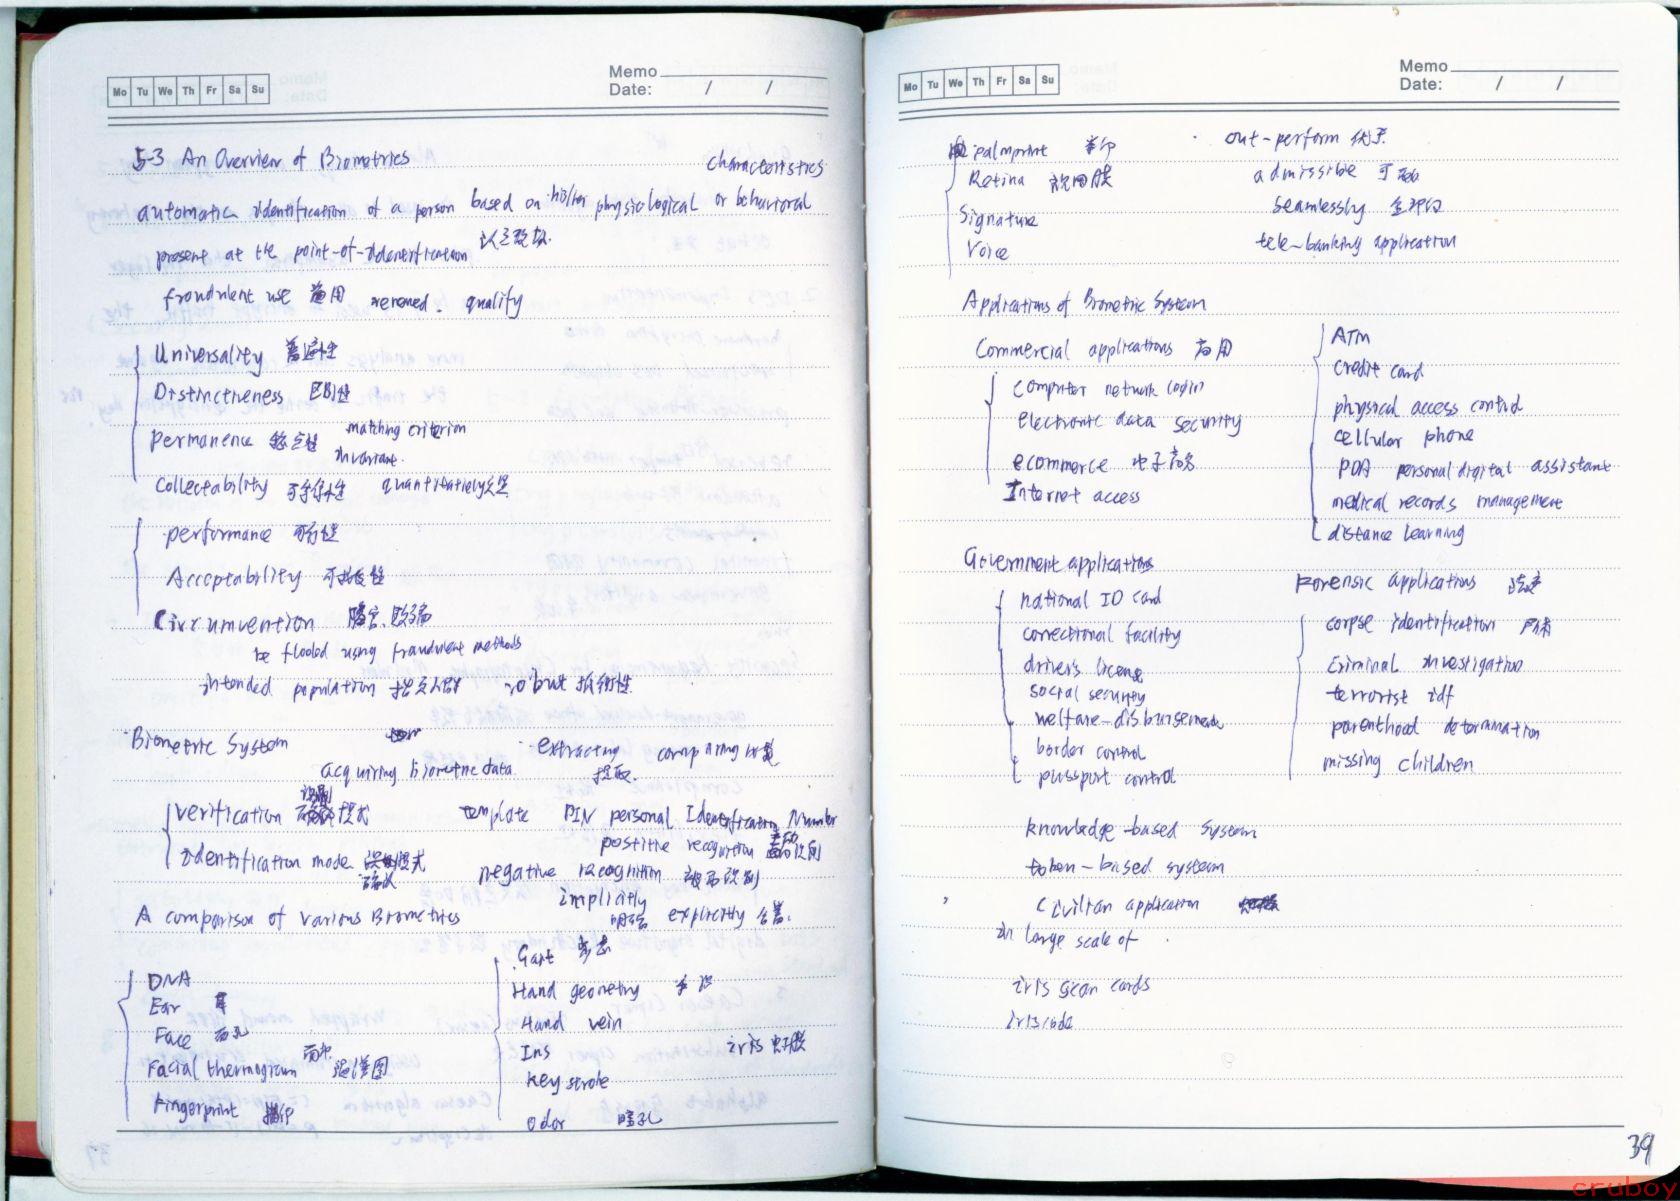 Mo Tu We Th Fr Sa Su
Memo
Date: / /
5-3 An Overview of Biometrics
characteristics
automatic identification of a person based on his/her physiological or behavioral
present at the point-of-identification
fraudulent use 盗用 renewed. qualify
Universality 普遍性
Distinctiveness 区别性
permanence 稳定性 matching criterion
invariant.
Collectability 可采集性 quantitatively 定量
performance 可行性
Acceptability 可接受性
Circumvention
be flooled using fraudulent methods
intended population robust 抵御性
Biometric System
extracting comparing
acquiring biometric data. 提取.
识别
verification 模式 template PIN personal Identification Number
positive recognition 主动识别
identification mode 模式 negative recognition 被动识别
确认 implicitly
A comparison of various Biometrics explicitly
DNA
Ear 耳
Face 面孔
Facial thermogram 温谱图
Fingerprint 指印
Gait 步态
Hand geometry
Hand vein
Iris iris 虹膜
keystroke
odor
Mo Tu We Th Fr Sa Su
Memo
Date: / /
palmprint 掌印
Retina 视网膜
Signature
Voice
out-perform 优于
admissible
seamlessly
tele-banking application
Applications of Biometric System
Commercial applications 商用
computer network login
electronic data security
ecommerce 电子商务
Internet access
ATM
credit card
physical access control
cellular phone
PDA personal digital assistant
medical records management
distance learning
Government applications
national ID card
correctional facility
driver's license
social security
welfare-disbursement
border control
passport control
Forensic applications 法定
corpse identification
Criminal investigation
terrorist idf
parenthood determination
missing children
knowladge-based system
token-based system
Civilian application
in large scale of
iris scan cards
iriscode
39
cruboy